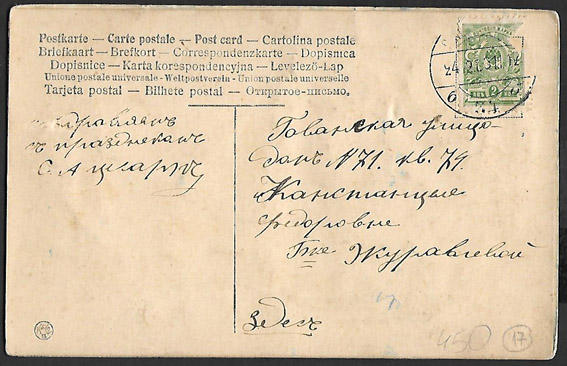 Postkarte — Carte postale — Post card — Cartolina postale
Briefkaart — Brefkort — Correspondenzkarte — Dopisnica
Dopisnice — Karta korespondencyjna — Levelező-Lap
Unione postale universale - Weltpostverein - Union postale universelle
Tarjeta postal — Bilhete postal — Открытое-письмо.
съ празднекамъ
Гаванская улица
домъ N 71. кв. 79.
Канстанцые
Федоровне
Г-же Журавлевой
Здесь
450
17